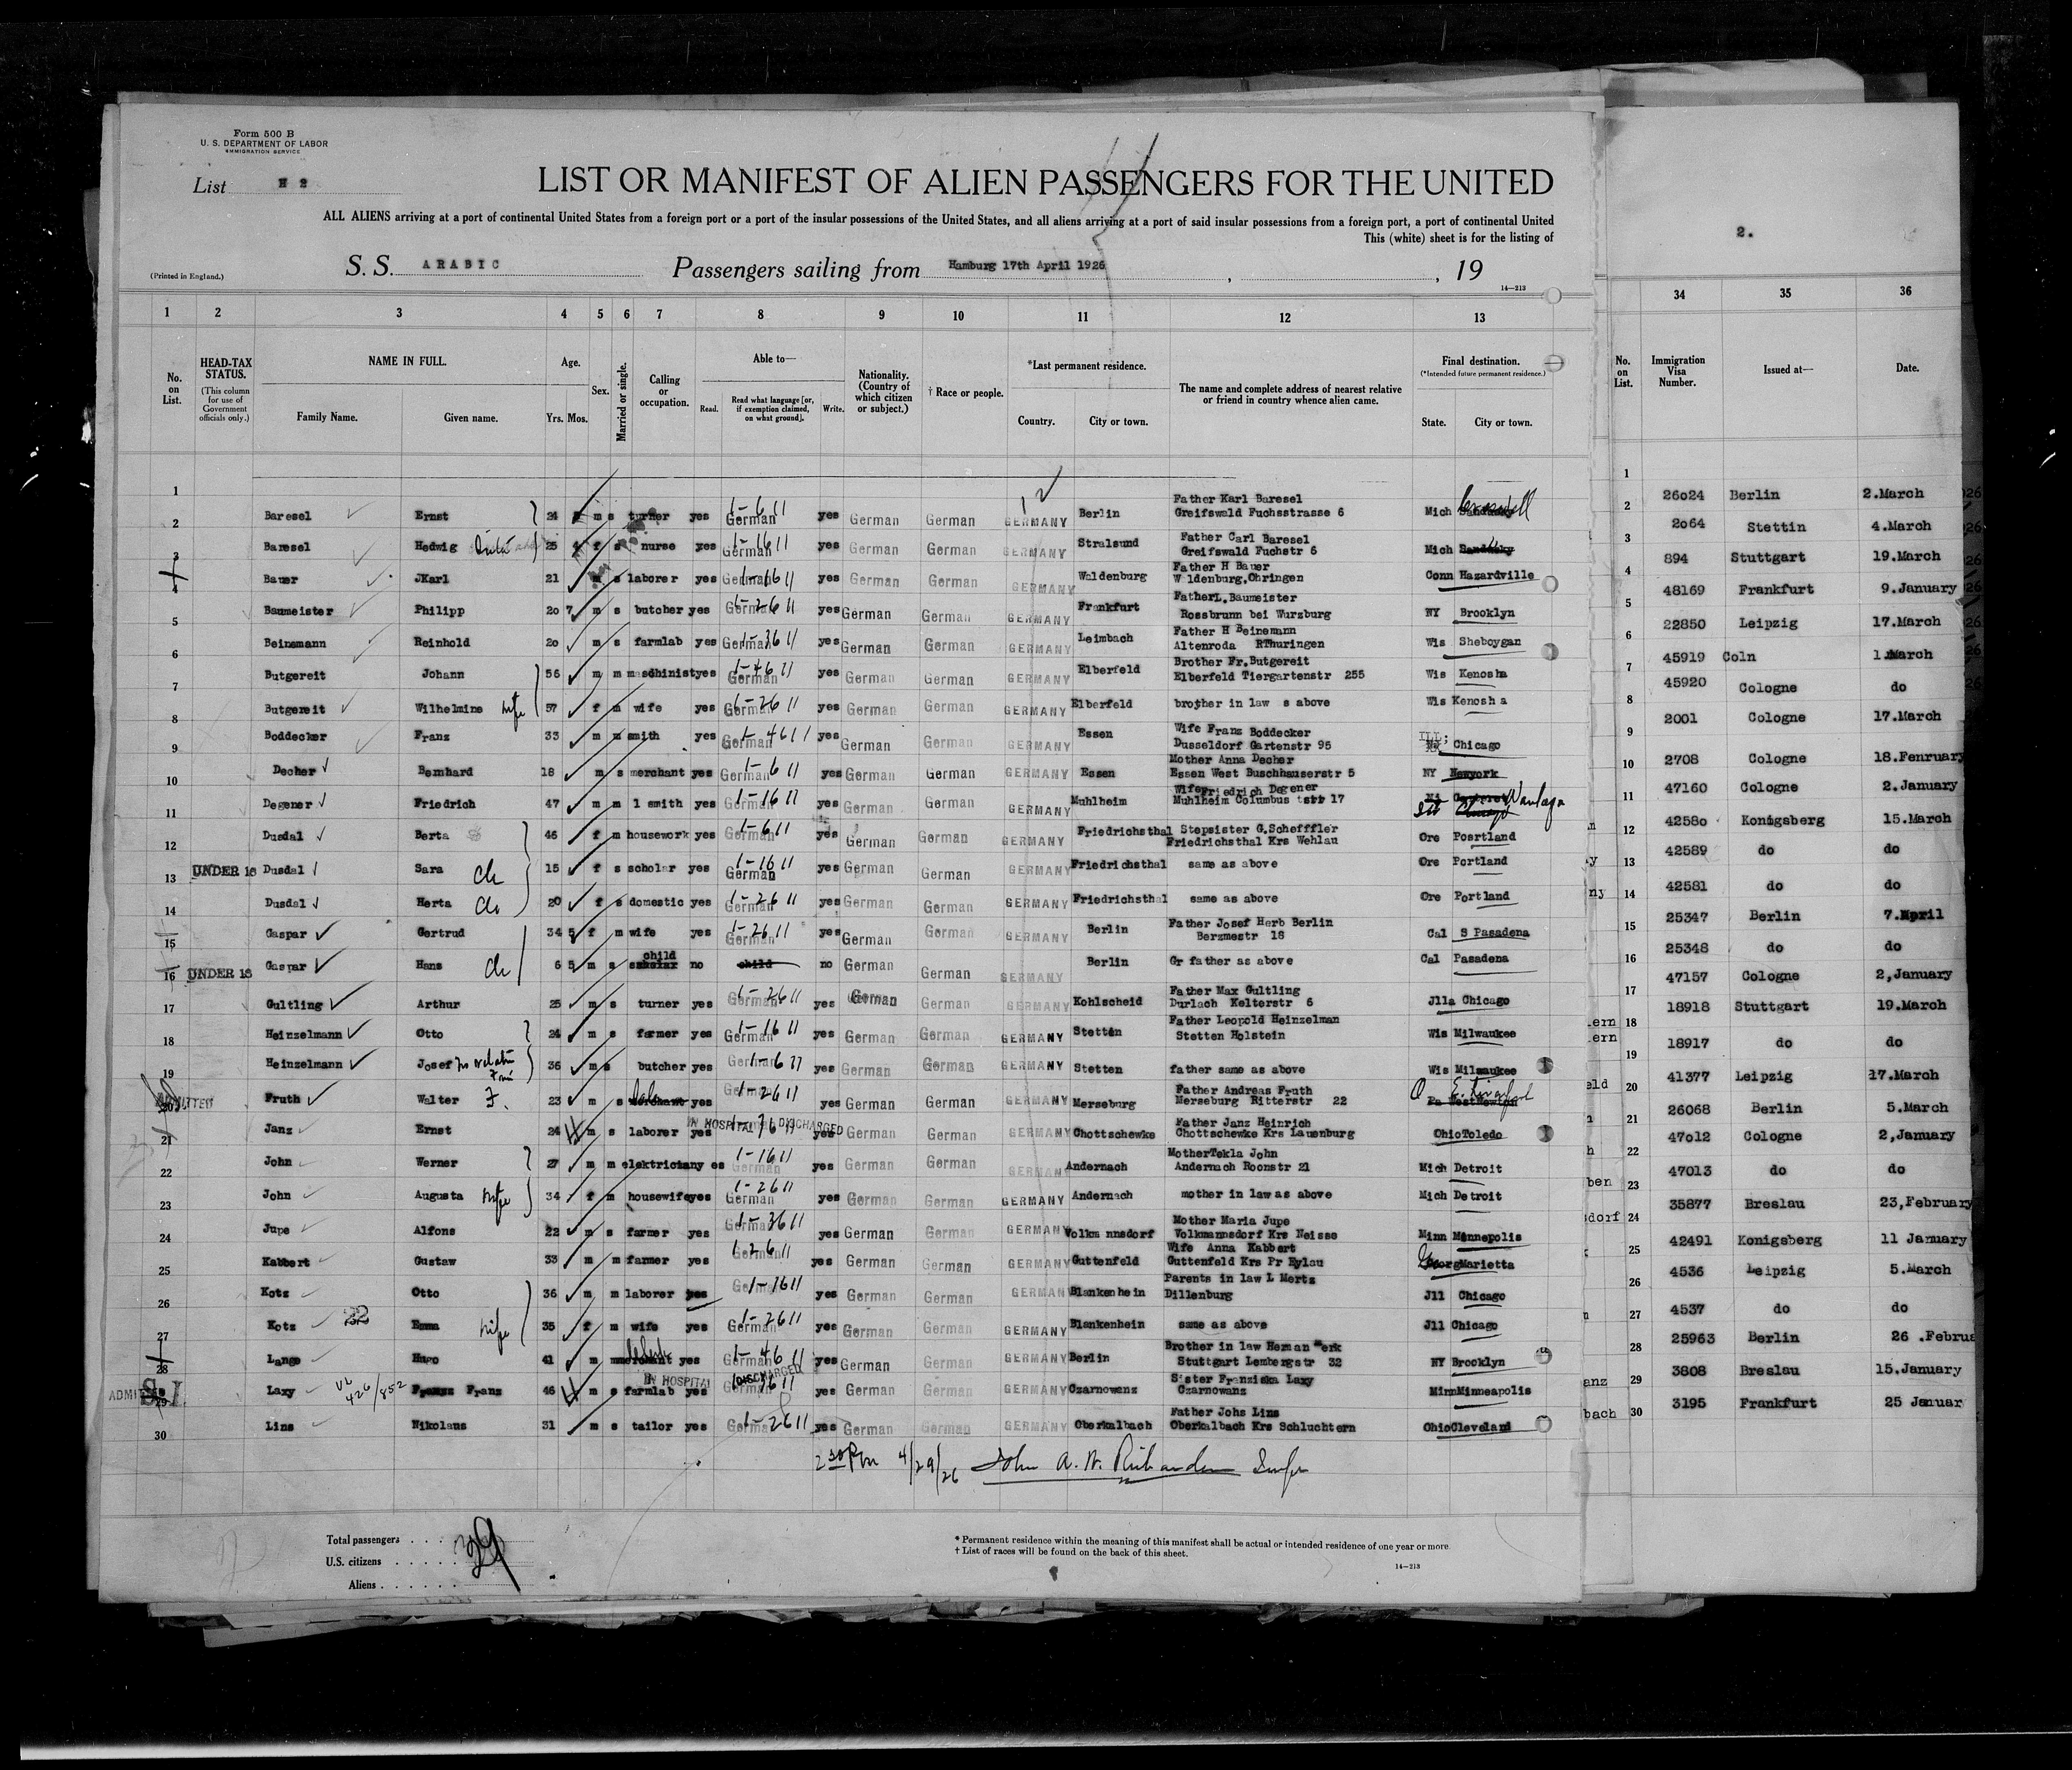 Form 500 B
U. S. DEPARTMENT OF LABOR
IMMIGRATION SERVICE
List H 2
LIST OR MANIFEST OF ALIEN PASSENGERS FOR THE UNITED
ALL ALIENS arriving at a port of continental United States from a foreign port or a port of the insular possessions of the United States, and all aliens arriving at a port of said insular possessions from a foreign port, a port of continental United
This (white) sheet is for the listing of
2.
(Printed in England.) S. S. ARABIC Passengers sailing from Hamburg 17th April 1926, , 19
14—213
1 2 3 4 5 6 7 8 9 10 11 12 13 34 35 36
No. on List. HEAD-TAX STATUS. (This column for use of Government officials only.) NAME IN FULL. Family Name. Given name. Age. Yrs. Mos. Sex. Married or single. Calling or occupation. Able to— Read. Read what language [or, if exemption claimed, on what ground]. Write. Nationality. (Country of which citizen or subject.) † Race or people. *Last permanent residence. Country. City or town. The name and complete address of nearest relative or friend in country whence alien came. Final destination. (*Intended future permanent residence.) State. City or town. No. on List. Immigration Visa Number. Issued at— Date.
1 1
2 Baresel Ernst 24 m s turner yes German yes German German GERMANY Berlin Father Karl Baresel Greifswald Fuchsstrasse 6 Mich Sandusky 2 26024 Berlin 2.March
3 Baresel Hedwig 25 4 f s nurse yes German yes German German GERMANY Stralsund Father Carl Baresel Greifswald Fuchstr 6 Mich Sandusky 3 2064 Stettin 4.March
4 Bauer JKarl 21 m s laborer yes German yes German German GERMANY Waldenburg Father H Bauer Waldenburg.Ohringen Conn Hazardville 4 894 Stuttgart 19.March
5 Baumeister Philipp 20 7 m s butcher yes German yes German German GERMANY Frankfurt FatherL.Baumeister Rossbrunn bei Wurzburg NY Brooklyn 5 48169 Frankfurt 9.January
6 Beinemann Reinhold 20 m s farmlab yes German yes German German GERMANY Leimbach Father H Beinemann Altenroda RThuringen Wis Sheboygan 6 22850 Leipzig 17.March
7 Butgereit Johann 56 m m maschinist yes German yes German German GERMANY Elberfeld Brother Fr.Butgereit Elberfeld Tiergartenstr 255 Wis Kenosha 7 45919 Coln 1.March
8 Butgereit Wilhelmine wife 57 f m wife yes German yes German German GERMANY Elberfeld brother in law s above Wis Kenosha 8 45920 Cologne do
9 Boddecker Franz 33 m m smith yes German yes German German GERMANY Essen Wife Franz Boddecker Dusseldorf Gartenstr 95 ILL; Chicago 9 2001 Cologne 17.March
10 Decher Bernhard 18 m s merchant yes German yes German German GERMANY Essen Mother Anna Decher Essen West Buschhauserstr 5 NY Newyork 10 2708 Cologne 18.Fenruary
11 Degener Friedrich 47 m m l smith yes German yes German German GERMANY Muhlheim WifeFriedrich Degener Muhlheim Columbus tstr 17 11 47160 Cologne 2.January
12 Dusdal Berta 46 f m housework yes German yes German German GERMANY Friedrichsthal Stepsister G.Schefffler Friedrichsthal Krs Wehlau Ore Poortland 12 42580 Konigsberg 15.March
13 UNDER 16 Dusdal Sara ch 15 f s scholar yes German yes German German GERMANY Friedrichsthal same as above Ore Portland 13 42589 do do
14 Dusdal Herta ch 20 f s domestic yes German yes German German GERMANY Friedrichsthal same as above Ore Portland 14 42581 do do
15 Gaspar Gertrud 34 5 f m wife yes German yes German German GERMANY Berlin Father Josef Herb Berlin Berzmestr 16 Cal S Pasadena 15 25347 Berlin 7.April
16 UNDER 16 Gaspar Hans ch 6 5 m s scholar child no child no German German GERMANY Berlin Gr father as above Cal Pasadena 16 25348 do do
17 Gultling Arthur 25 m s turner yes German yes German German GERMANY Kohlscheid Father Max Gultling Durlach Kelterstr 6 Jlla Chicago 17 47157 Cologne 2,January
18 Heinzelmann Otto 24 m s farmer yes German yes German German GERMANY Stetten Father Leopold Heinzelman Stetten Holstein Wis Milwaukee 18 18918 Stuttgart 19.March
19 Heinzelmann Josef no relatn 36 m s butcher yes German yes German German GERMANY Stetten father same as above Wis Milwaukee 19 18917 do do
20 ADMITTED Fruth Walter F. 23 m s merchant yes German yes German German GERMANY Merseburg Father Andreas Fruth Merseburg Ritterstr 22 Pa WestNewton 20 41377 Leipzig 17.March
21 Janz Ernst 24 m s laborer yes IN HOSPITAL DISCHARGED yes German German GERMANY Chottschewke Father Janz Heinrich Chottschewke Krs Lauenburg OhioToledo 21 26068 Berlin 5.March
22 John Werner 27 m m elektriciany es German yes German German GERMANY Andernach MotherTekla John Andernach Roonstr 21 Mich Detroit 22 47012 Cologne 2,January
23 John Augusta wife 34 f m housewife yes German yes German German GERMANY Andernach mother in law as above Mich Detroit 23 47013 do do
24 Jupe Alfons 22 m s farmer yes German yes German German GERMANY Volkm nnsdorf Mother Maria Jupe Volkmannsdorf Krs Neisse Minn Minnepolis 24 35877 Breslau 23,February
25 Kabbert Gustaw 33 m m farmer yes German yes German German GERMANY Guttenfeld Wife Anna Kabbert Guttenfeld Krs Pr Eylau GeorgMarietta 25 42491 Konigsberg 11 January
26 Kotz Otto 36 m m laborer yes German yes German German GERMANY Blankenhein Parents in law L Mertz Dillenburg Jll Chicago 26 4536 Leipzig 5.March
27 Kotz Emma wife 35 f m wife yes German yes German German GERMANY Blankenhein same as above Jll Chicago 27 4537 do do
28 Lange Hugo 41 m m merchant yes German yes German German GERMANY Berlin Brother in law Heman Werk Stuttgart Lembergstr 32 NY Brooklyn 28 25963 Berlin 26 .Februa
29 ADMITTED S I Laxy 426/852 Franz 46 m s farmlab yes IN HOSPITAL DISCHARGED German yes German German GERMANY Czarnowanz Sister Franziska Laxy Czarnowanz MinnMinneapolis 29 3808 Breslau 15.January
30 Lins Nikolaus 31 m s tailor yes German yes German German GERMANY Oberkalbach Father Johs Lins Oberkalbach Krs Schluchtern OhioCleveland 30 3195 Frankfurt 25 Januar
2 30 Pm 4/29/26 John A. W. Richardson Insp
Total passengers 29
U.S. citizens
Aliens
* Permanent residence within the meaning of this manifest shall be actual or intended residence of one year or more.
† List of races will be found on the back of this sheet.
14—213